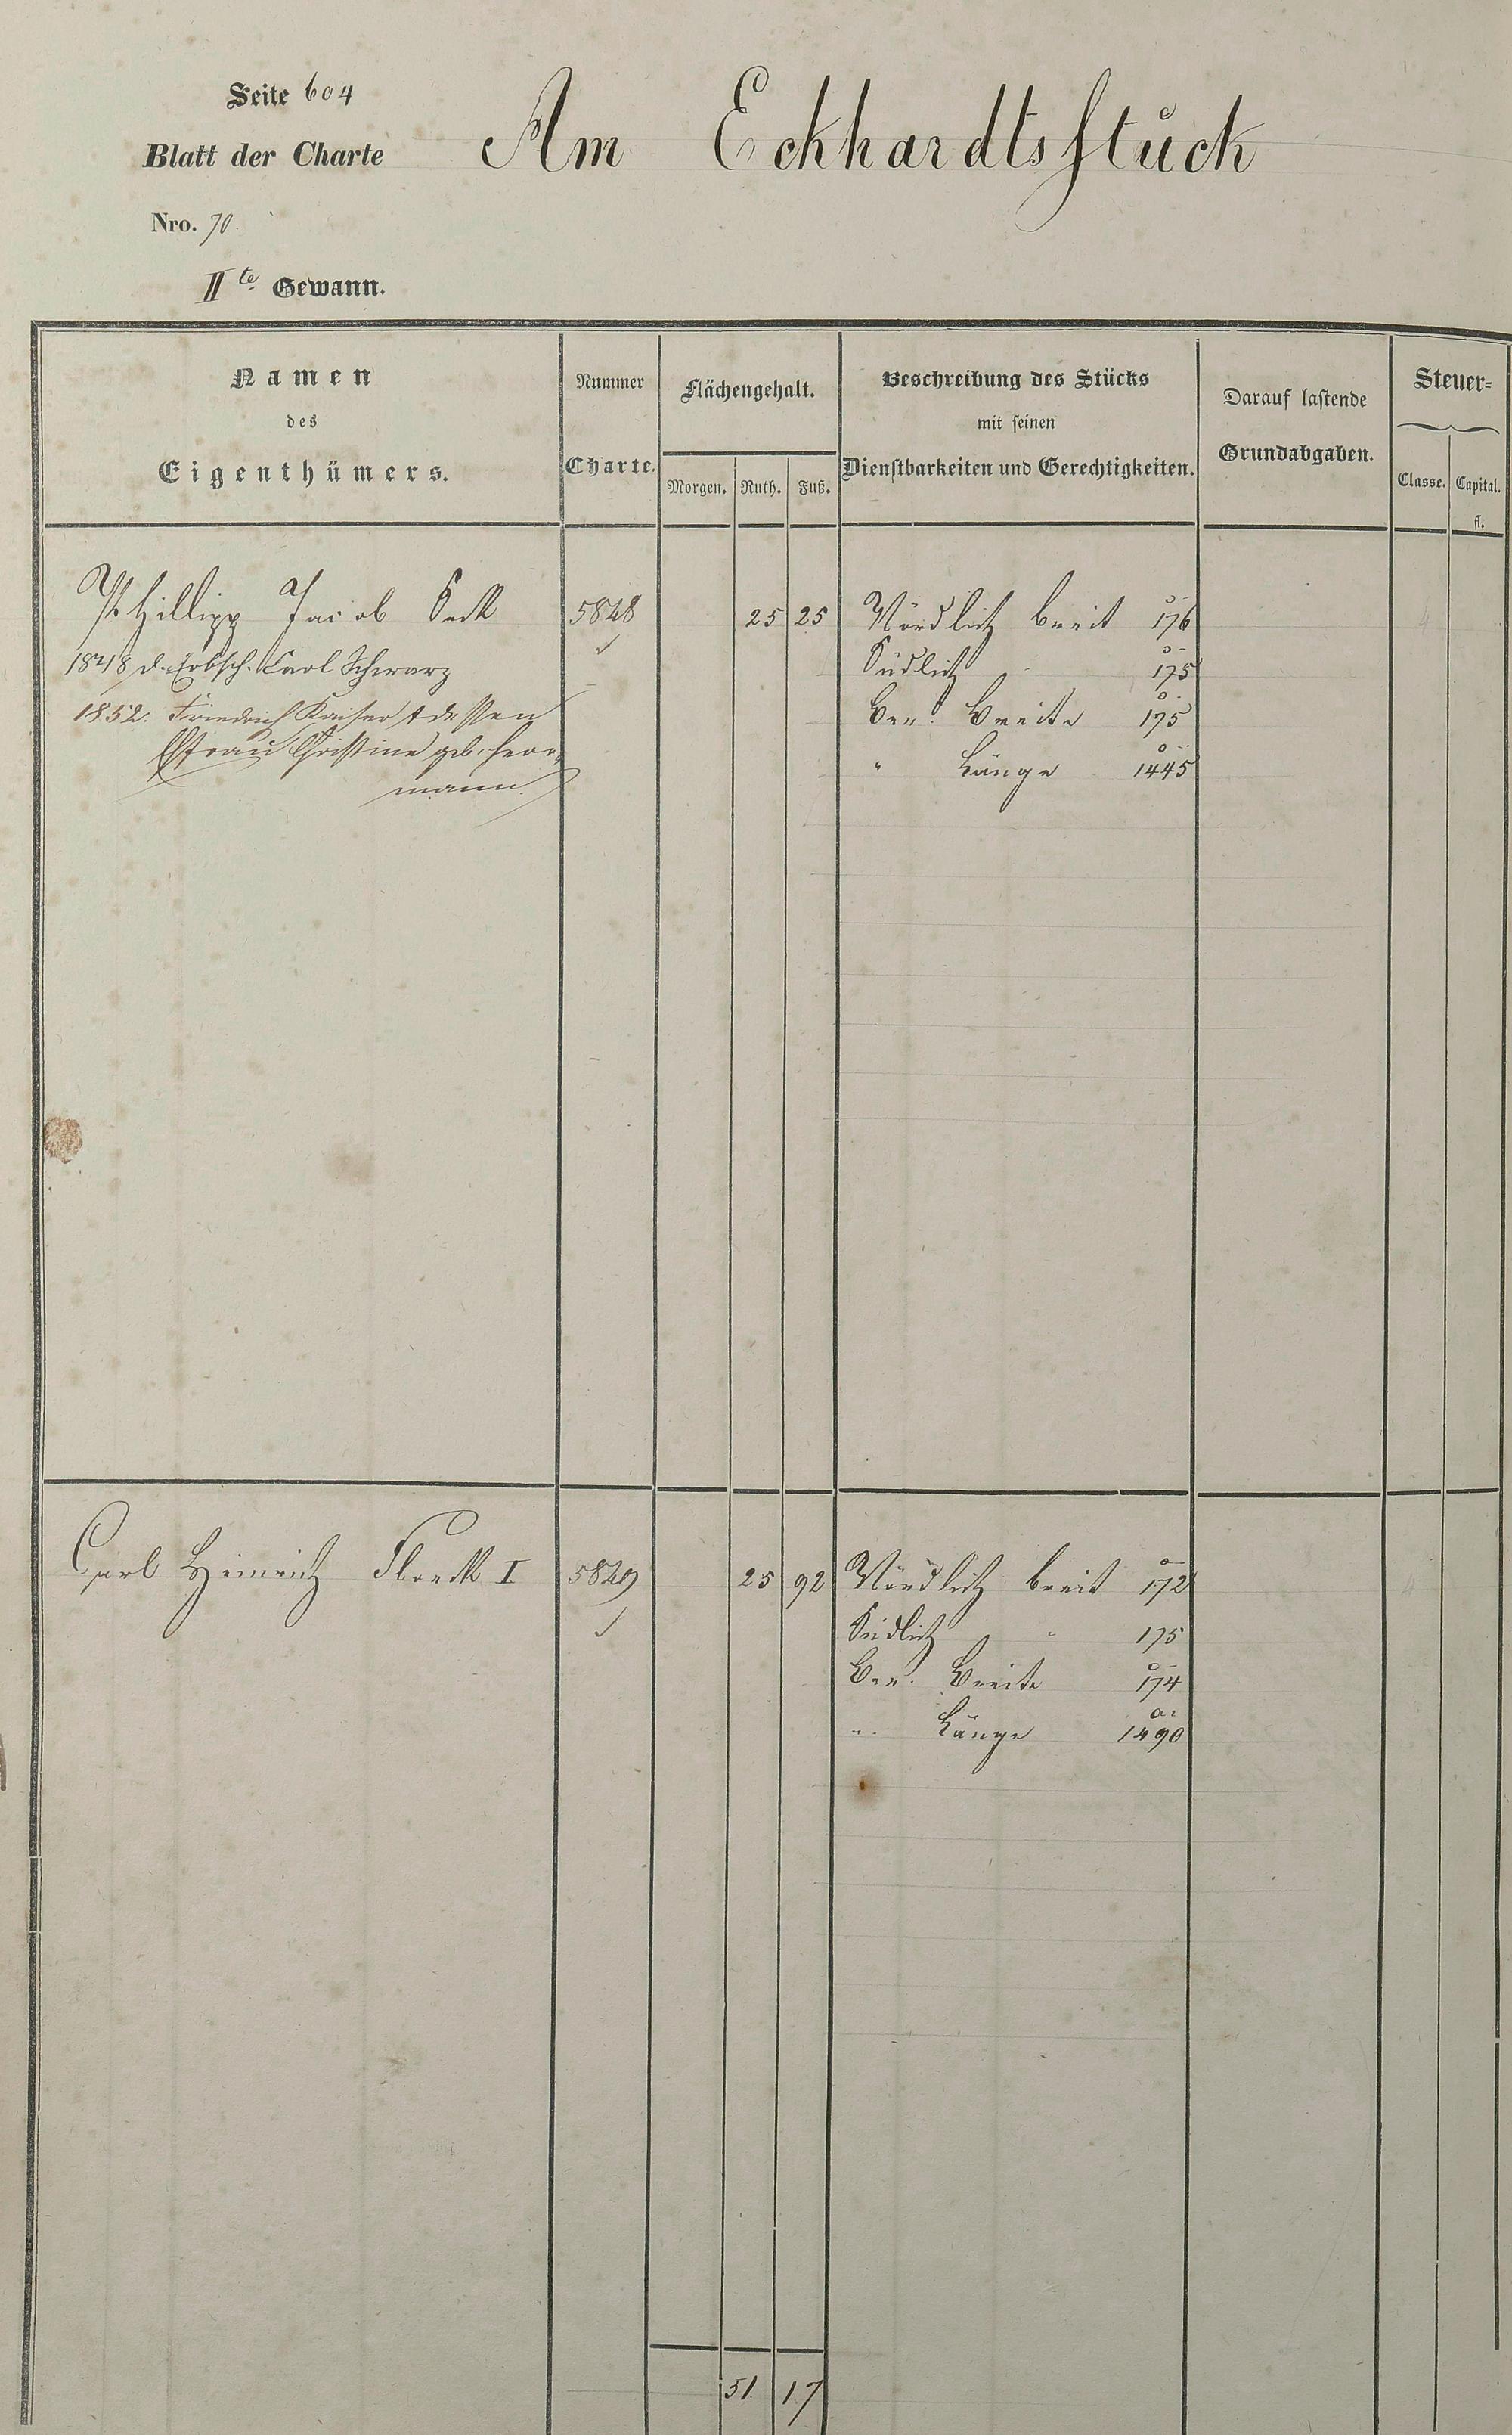 Seite 604
Blatt der Charte
Am Eckhardtsstück
Nro. 70
IIte Gewann.
Namen
des
Eigenthümers.
Nummer
Charte.
Flächengehalt.
Morgen. Ruth. Fuß.
Beschreibung des Stücks
mit seinen
Dienstbarkeiten und Gerechtigkeiten.
Darauf lastende
Grundabgaben.
Steuer=
Classe. Capital.
fl.
Phillipp Jacob 5828 25 25 Nördlich breit 176
1848 d. Erbsch. Carl Schwarz
Südlich 175
1852. Friedrich Kaiser & dessen
Ber. Breite 175
Ehfrau Christine geb. Herr=
" Länge 1445
mann.
Carl Heinrich Floeck I 5829 25 92 Nördlich breit 172
Südlich " 175
Ber. Breite 174
" Länge 1490
51 17